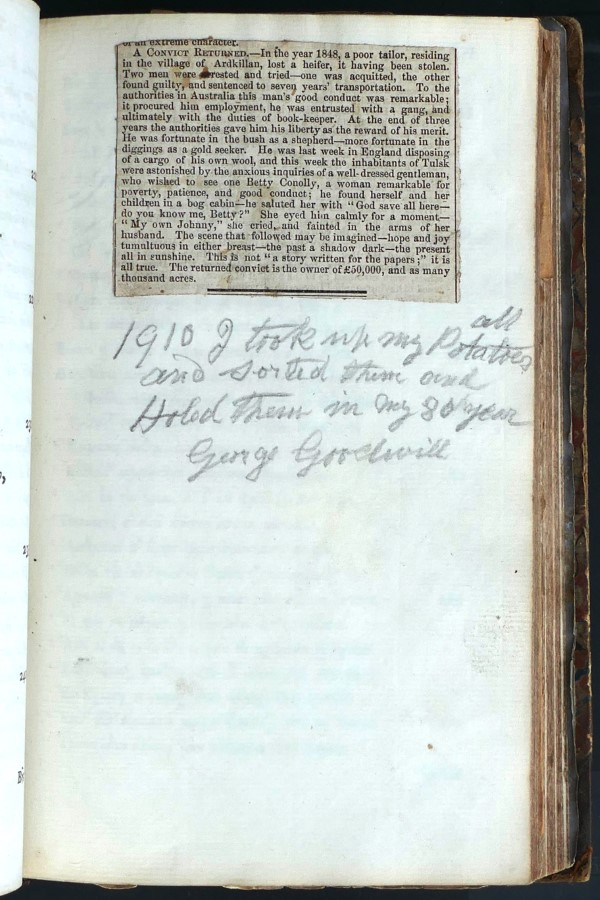 of an extreme character.
A CONVICT RETURNED.—In the year 1848, a poor tailor, residing
in the village of Ardkillan, lost a heifer, it having been stolen.
Two men were arrested and tried—one was acquitted, the other
found guilty, and sentenced to seven years' transportation. To the
authorities in Australia this man's good conduct was remarkable;
it procured him employment, he was entrusted with a gang, and
ultimately with the duties of book-keeper. At the end of three
years the authorities gave him his liberty as the reward of his merit.
He was fortunate in the bush as a shepherd—more fortunate in the
diggings as a gold seeker. He was last week in England disposing
of a cargo of his own wool, and this week the inhabitants of Tulsk
were astonished by the anxious inquiries of a well-dressed gentleman,
who wished to see one Betty Conolly, a woman remarkable for
poverty, patience, and good conduct; he found herself and her
children in a bog cabin—he saluted her with "God save all here—
do you know me, Betty?" She eyed him calmly for a moment—
"My own Johnny," she cried, and fainted in the arms of her
husband. The scene that followed may be imagined—hope and joy
tumultuous in either breast—the past a shadow dark—the present
all in sunshine. This is not "a story written for the papers;" it is
all true. The returned convict is the owner of £50,000, and as many
thousand acres.
1910 I took up my all Potatoes
and sorted them and
Holed them in my 80 year
George Goodwill